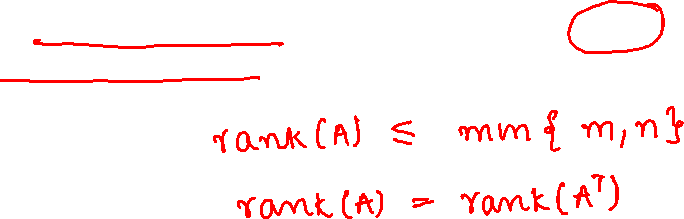 rank(A) ≤ min{ m,n}
rank(A) = rank(Aᵀ)